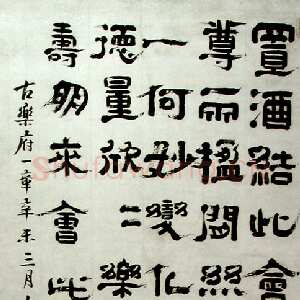 置酒結此會
尊兩楹間絲
一何妙變化
德量欣〻樂
壽朋來會此
古樂府一章辛未三月